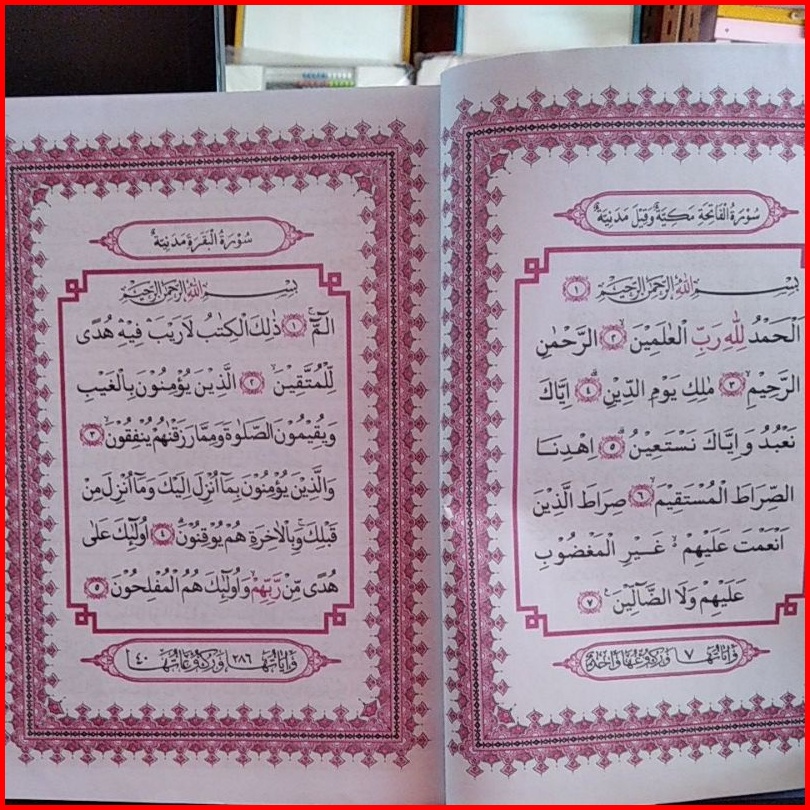 سُوْرَةُ الْفَاتِحَةِ مَكِّيَّةٌ وَقِيْلَ مَدَنِيَّةٌ
بِسْمِ اللّٰهِ الرَّحْمٰنِ الرَّحِيْمِ ١
اَلْحَمْدُ لِلّٰهِ رَبِّ الْعٰلَمِيْنَۙ ٢ الرَّحْمٰنِ
الرَّحِيْمِۙ ٣ مٰلِكِ يَوْمِ الدِّيْنِۗ ٤ اِيَّاكَ
نَعْبُدُ وَاِيَّاكَ نَسْتَعِيْنُۗ ٥ اِهْدِنَا
الصِّرَاطَ الْمُسْتَقِيْمَۙ ٦ صِرَاطَ الَّذِيْنَ
اَنْعَمْتَ عَلَيْهِمْ ەۙ غَيْرِ الْمَغْضُوْبِ
عَلَيْهِمْ وَلَا الضَّاۤلِّيْنَ ࣖ ٧
وَاٰيَاتُهَا ٧ وَرُكُوْعُهَا وَاحِدَةٌ
سُوْرَةُ الْبَقَرَةِ مَدَنِيَّةٌ
بِسْمِ اللّٰهِ الرَّحْمٰنِ الرَّحِيْمِ
الۤمّۤۚ ١ ذٰلِكَ الْكِتٰبُ لَا رَيْبَۛ فِيْهِۛ هُدًى
لِّلْمُتَّقِيْنَۙ ٢ الَّذِيْنَ يُؤْمِنُوْنَ بِالْغَيْبِ
وَيُقِيْمُوْنَ الصَّلٰوةَ وَمِمَّا رَزَقْنٰهُمْ يُنْفِقُوْنَۙ ٣
وَالَّذِيْنَ يُؤْمِنُوْنَ بِمَآ اُنْزِلَ اِلَيْكَ وَمَآ اُنْزِلَ مِنْ
قَبْلِكَۚ وَبِالْاٰخِرَةِ هُمْ يُوْقِنُوْنَۗ ٤ اُولٰۤىِٕكَ عَلٰى
هُدًى مِّنْ رَّبِّهِمْۙ وَاُولٰۤىِٕكَ هُمُ الْمُفْلِحُوْنَ ٥
وَاٰيَاتُهَا ٢٨٦ وَرُكُوْعَاتُهَا ٤٠